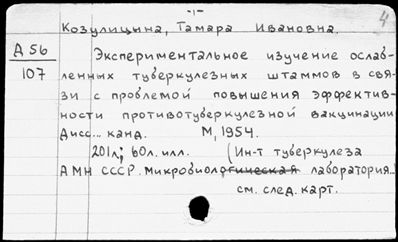 -1-
4
Козулицына, Тамара Ивановна.
Д 56
107
Экспериментальное изучение ослаб-
ленных туберкулезных штаммов в свя-
зи с проблемой повышения эффектив-
ности противотуберкулезной вакцинации
Дисс... канд. М, 1954.
201л; 60л. илл. (Ин-т туберкулеза
АМН СССР. Микробиологическая лаборатория..)
см. след. карт.